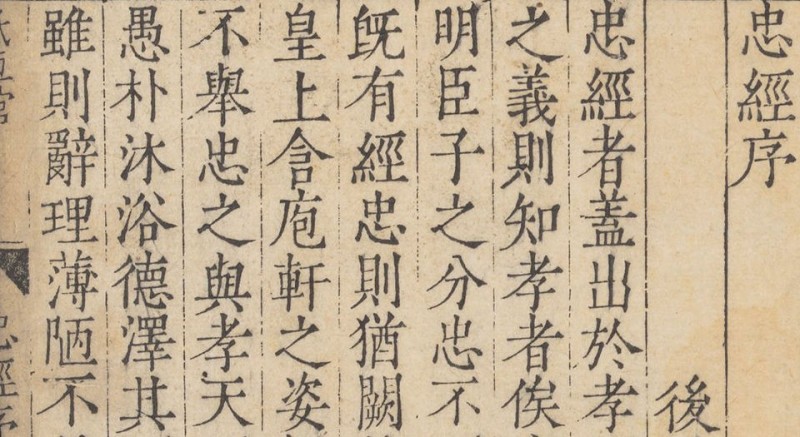 忠經序
後
忠經者蓋出於孝
之義則知孝者俟
明臣子之分忠不
旣有經忠則猶闕
皇上含庖軒之姿
不舉忠之與孝天
愚朴沐浴德澤其
雖則辭理薄陋不
忠經序